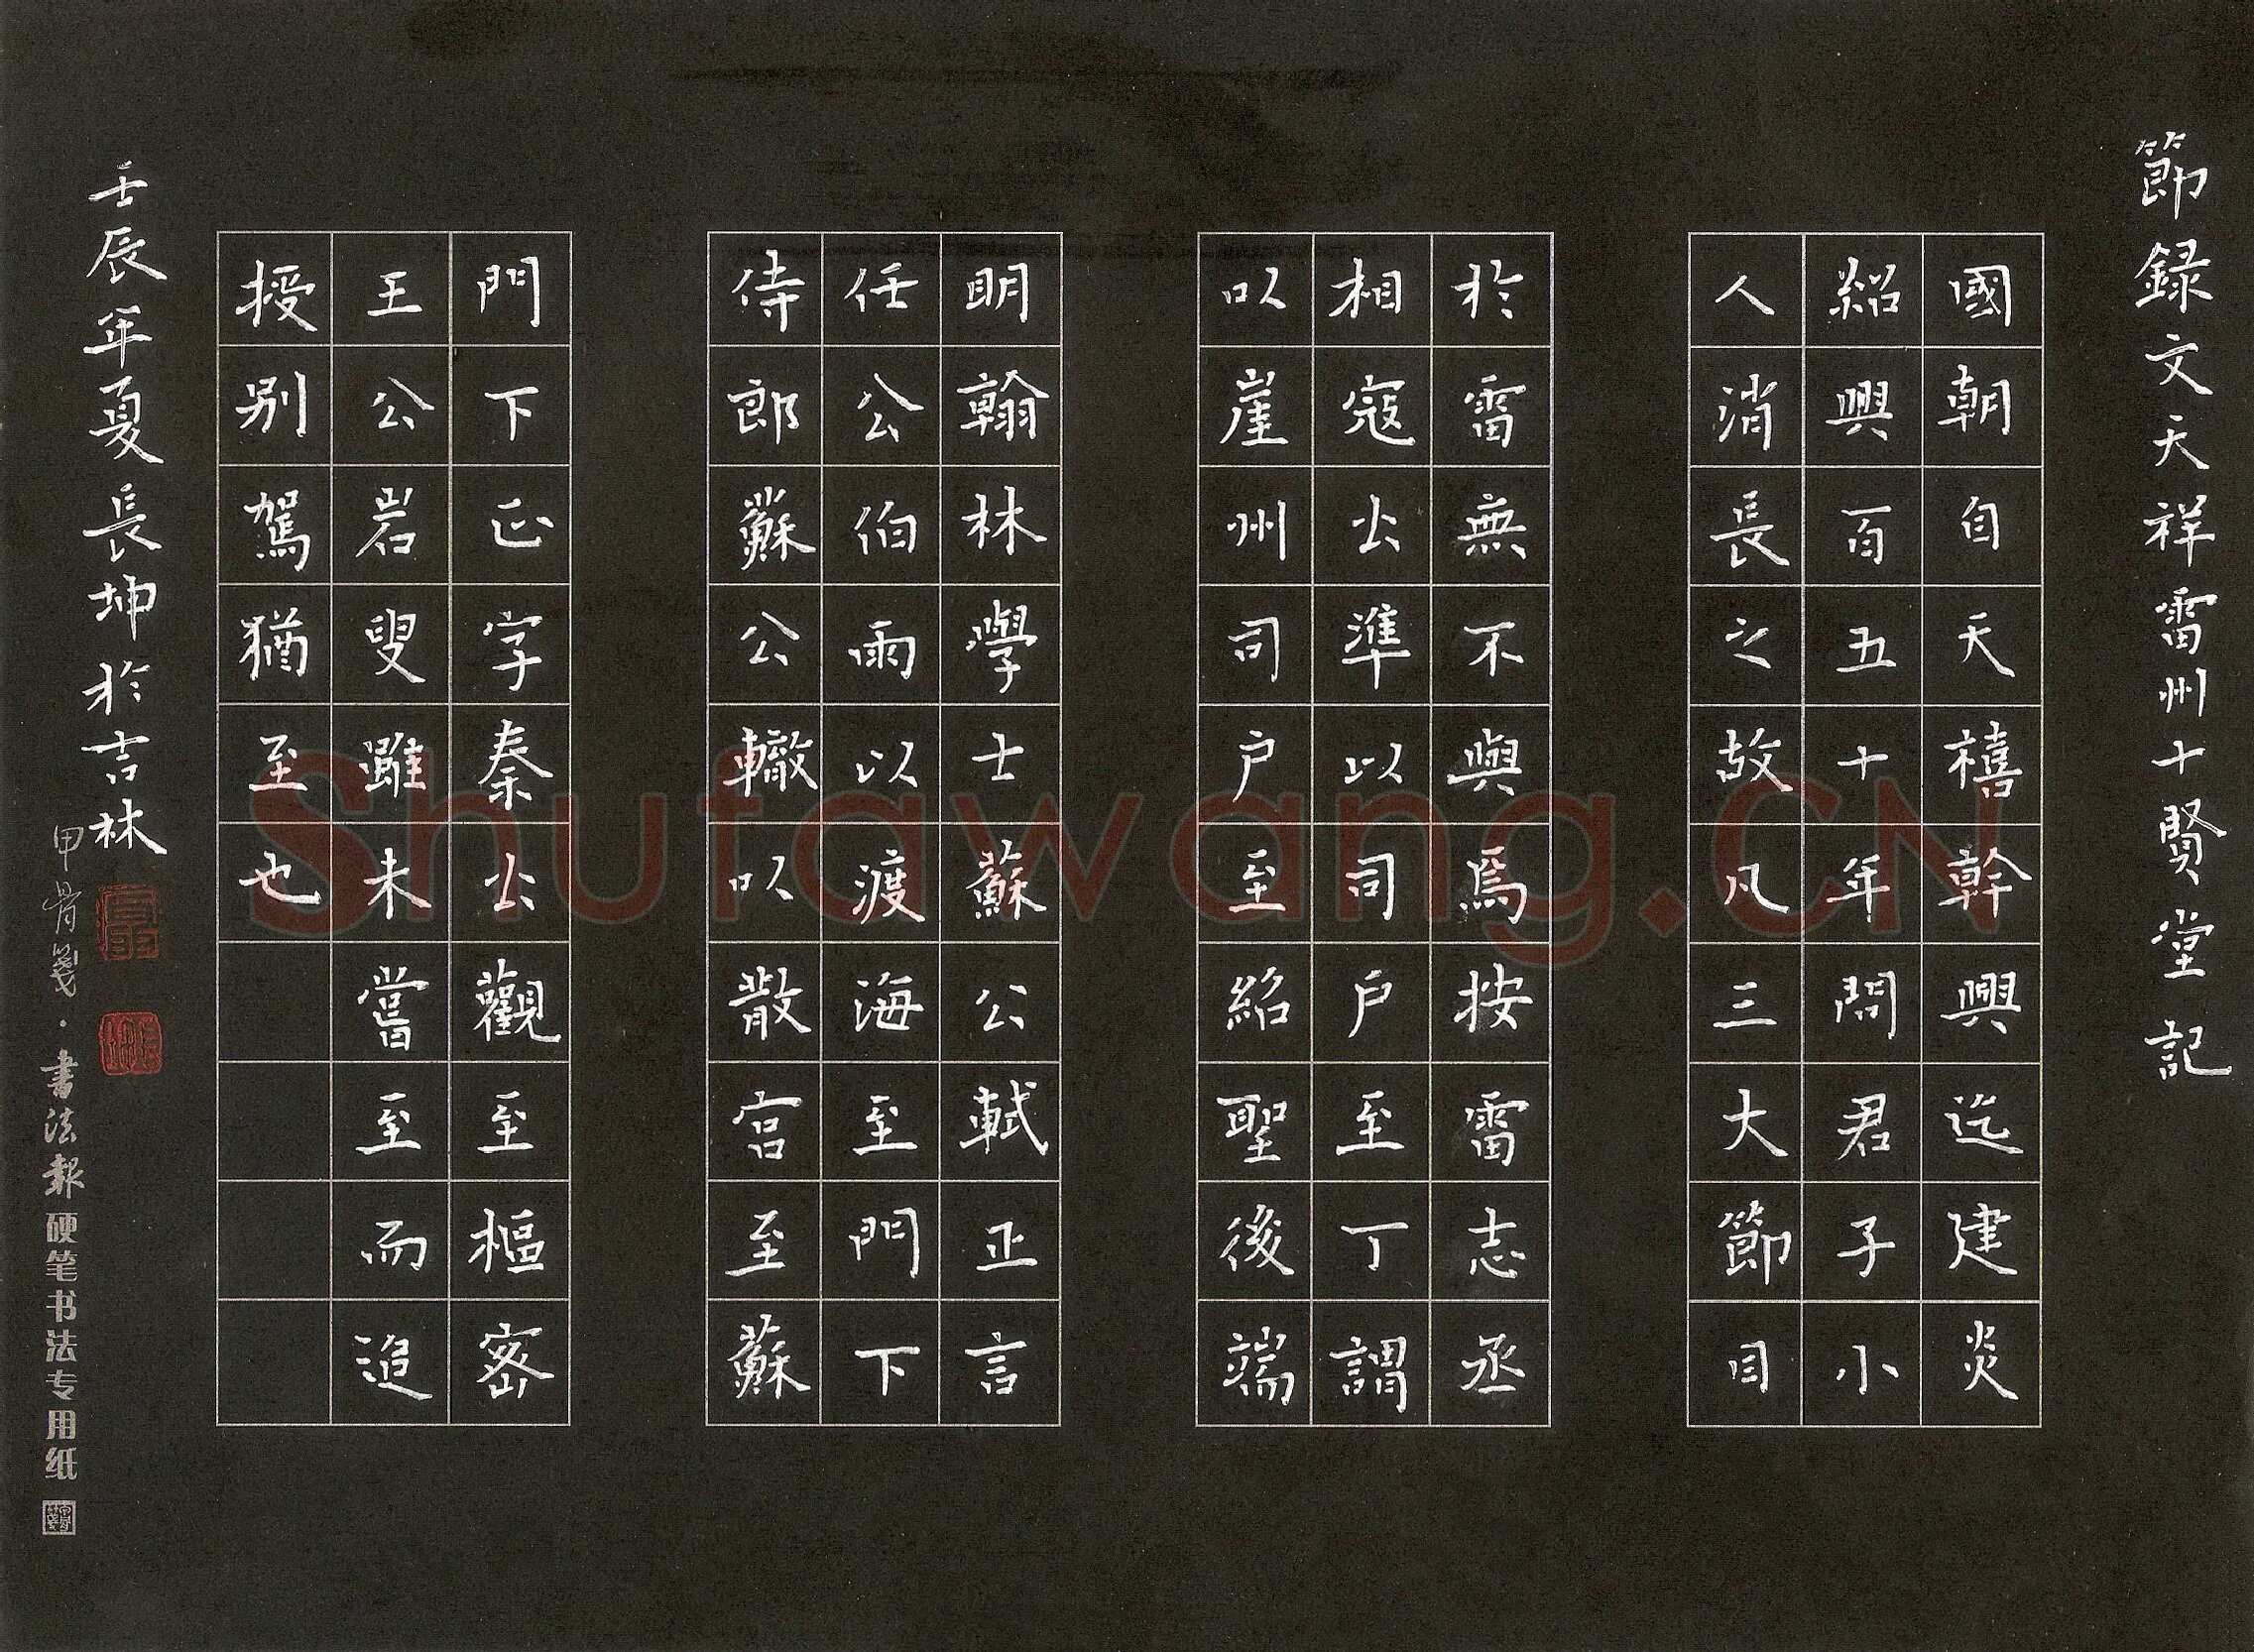 節録文天祥雷州十賢堂記
國朝自天禧幹興迄建炎
紹興百五十年間君子小
人消長之故凡三大節目
於雷無不與焉按雷志丞
相寇公準以司戶至丁謂
以崖州司戶至紹聖後端
明翰林學士蘇公軾正言
任公伯雨以渡海至門下
侍郎蘇公轍以散官至蘇
門下正字秦公觀至樞密
王公岩叟雖未嘗至而追
授别駕猶至也
壬辰年夏長坤於吉林
甲骨箋·書法報硬笔书法专用纸
Shufawang.CN